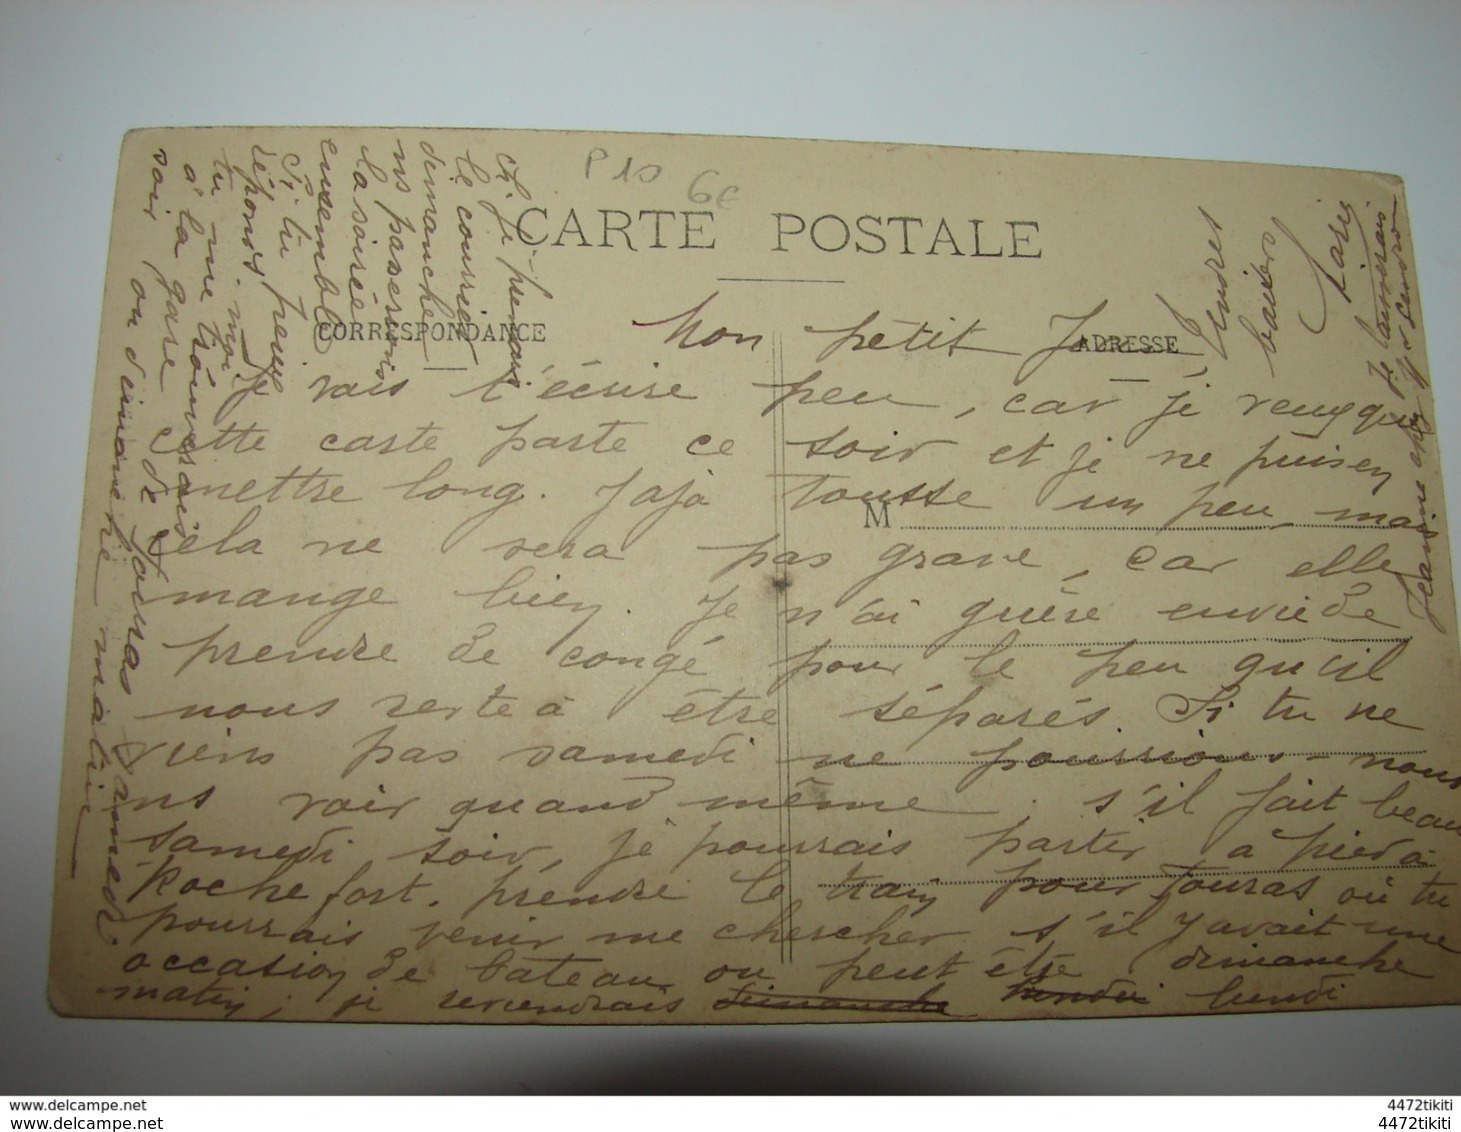 P10 6€
CARTE POSTALE
CORRESPONDANCE
ADRESSE
M
Mon petit
Je vais t'écrire peu, car je veux que
cette carte parte ce soir et je ne puis en
mettre long. Jaja tousse un peu, mais
cela ne sera pas grave, car elle
mange bien. Je n'ai guère envie de
prendre de congé pour le peu qu'il
nous reste à être séparés. Si tu ne
viens pas samedi ne pourrions-nous
ns voir quand même. s'il fait beau
samedi soir, je pourrais partir à pied à
Rochefort. prendre le train pour Touras où tu
pourrais venir me chercher s'il y avait une
occasion de bateau ou peut être dimanche
matin ; je reviendrais dimanche lundi
ch. je prenais
le courrier
dimanche
ns passerions
la soirée
ensemble
Si tu peux
réponds-moi
tu me trouverais
à la gare de Touras samedi
soir, ou dimanche matin
baisers
je laisserais
Jeanne chez